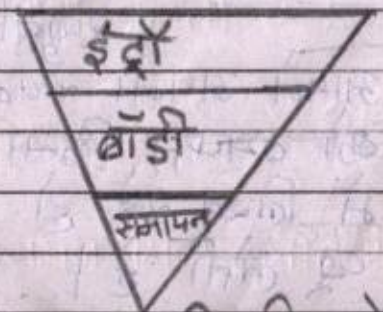 इंट्रो
बॉडी
समापन